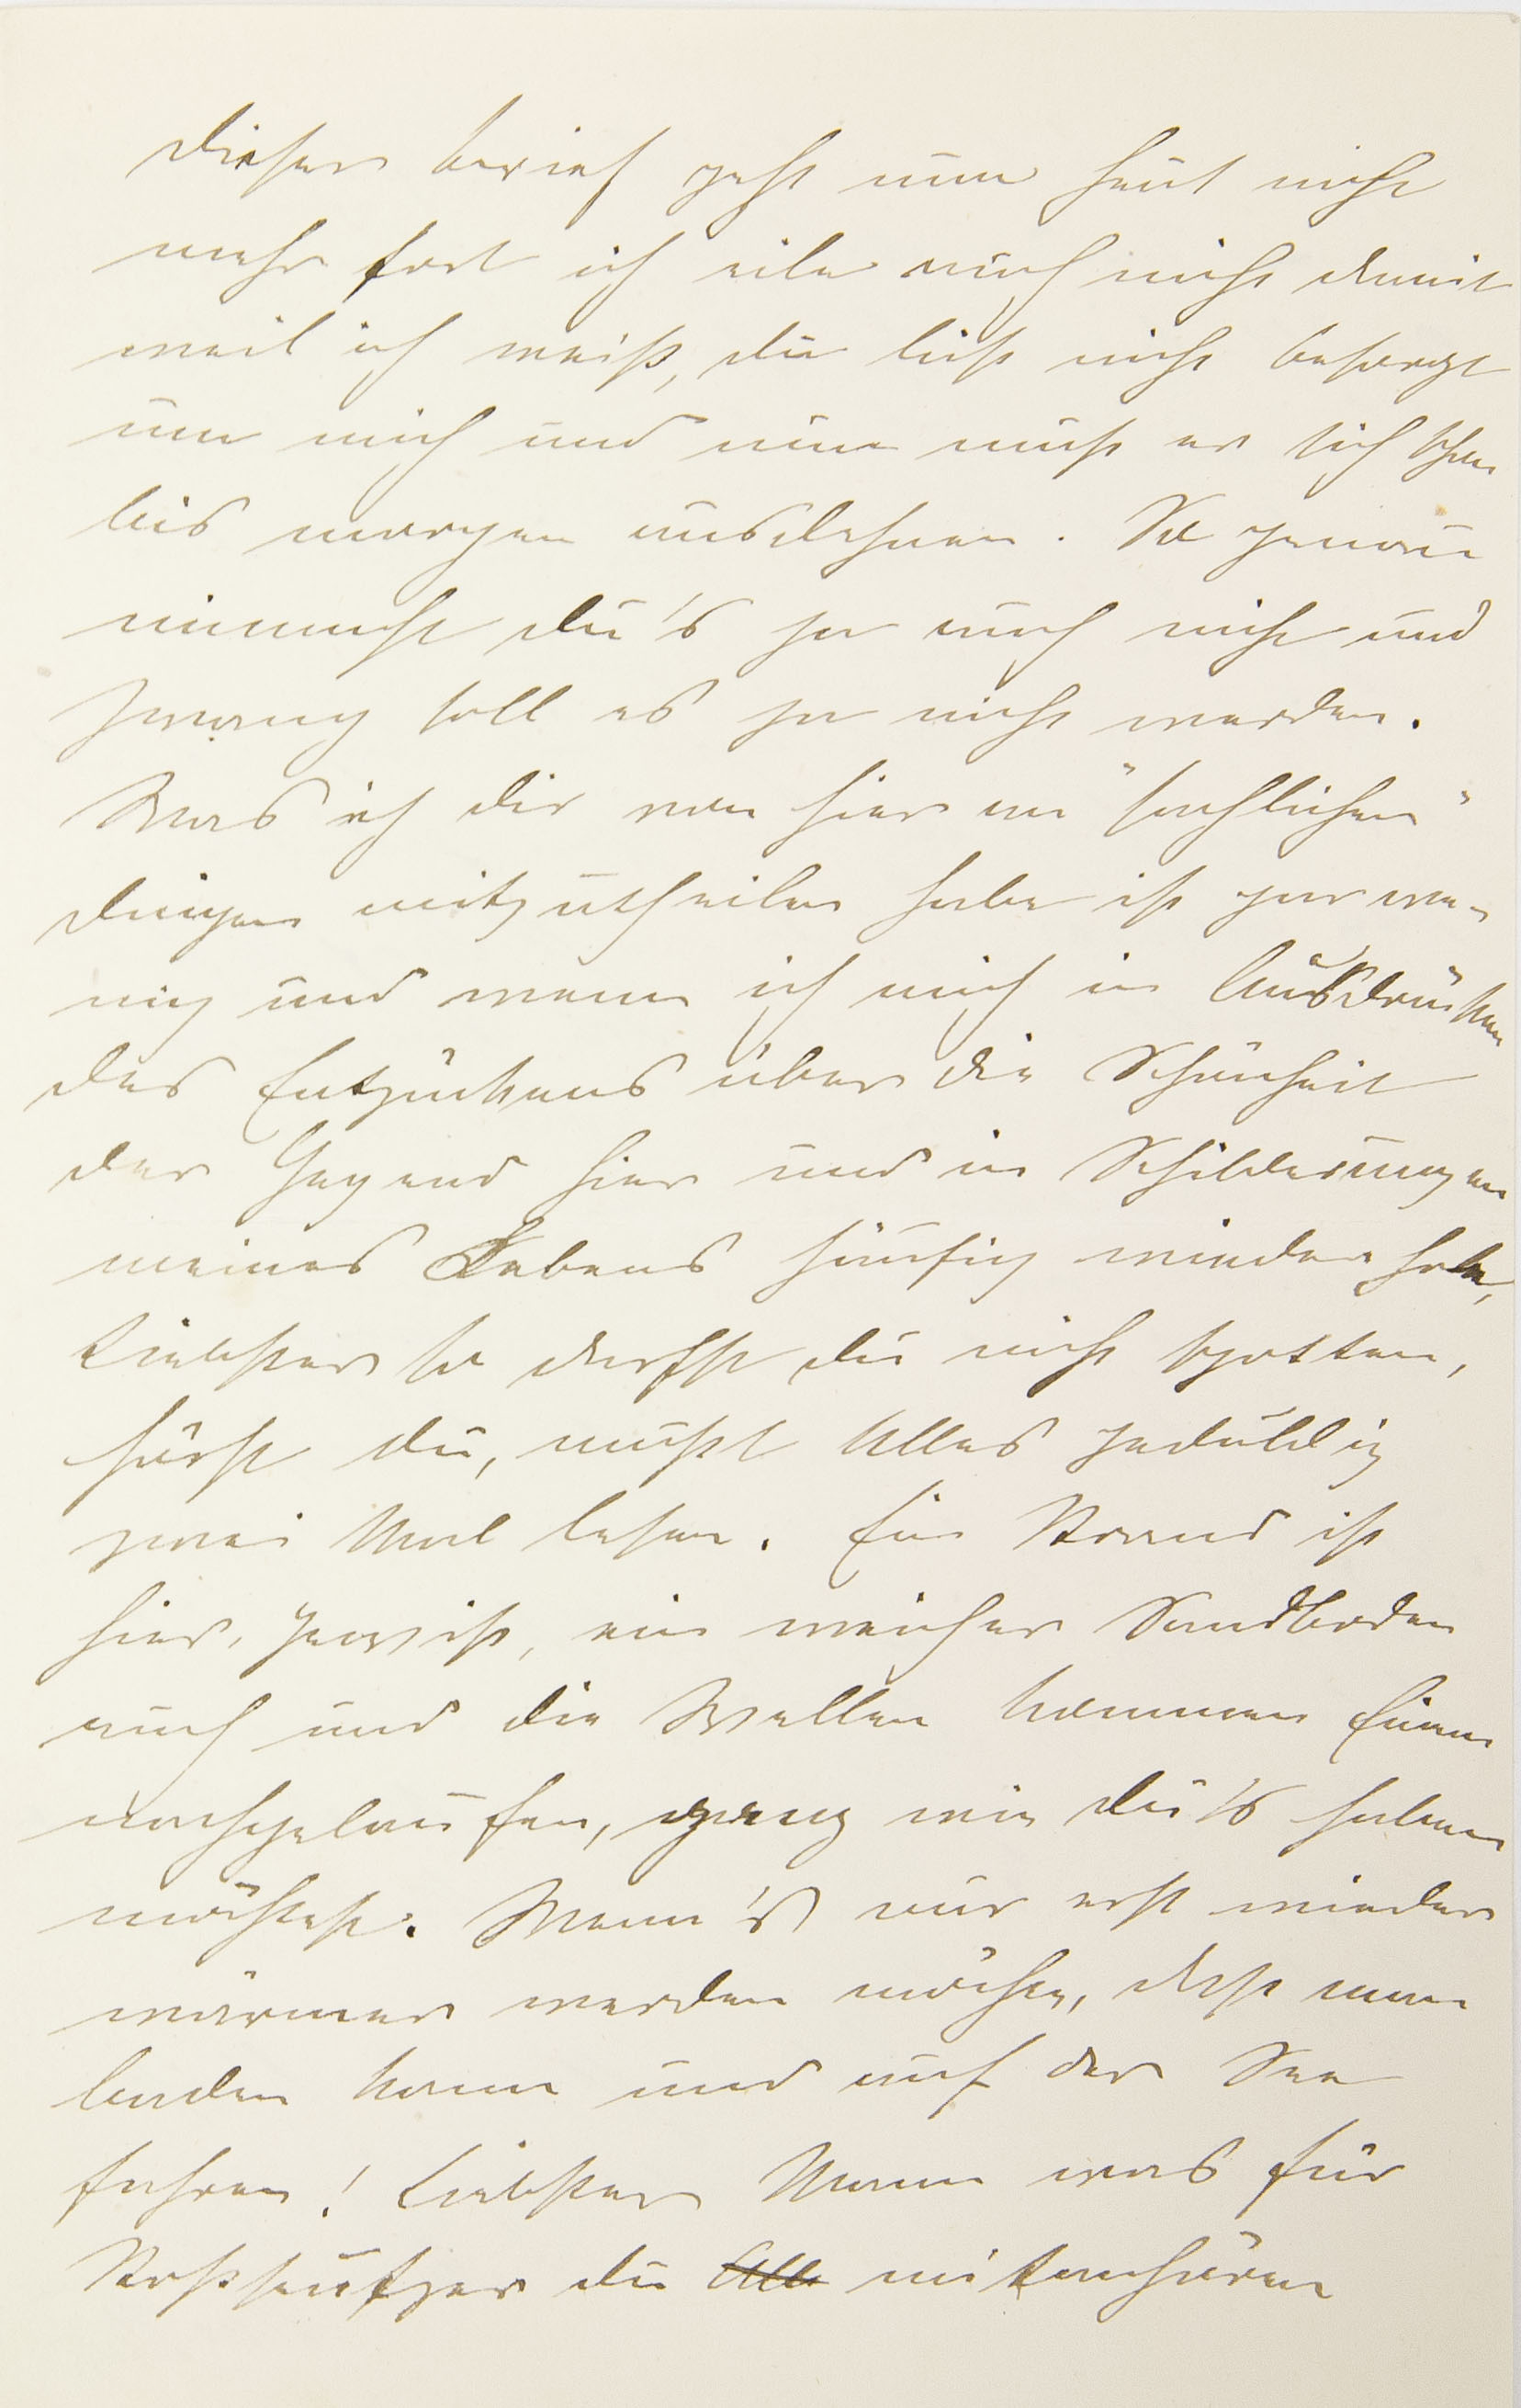 Dieser Brief geht nun heut nicht
mehr fort ich eile auch nicht damit
weil ich weiß, du bist nicht besorgt
um mich und nun muß er sich schon
bis morgen ausdehnen. So genau
nimmst du's ja auch nicht und
Zwang soll es ja nicht werden.
Was ich dir von hier an "sachlichen"
Dingen mitzutheilen habe ist gar we-
nig und wenn ich mich in Ausdrücken
des Entzückens über die Schönheit
der Gegend hier und in Schilderungen
meines Lebens häufig wiederhole,
Liebster so darfst du nicht spotten,
hörst du, mußt Alles geduldig
zwei Mal lesen. Ein Strand ist
hier, gewiß, ein weicher Sandboden
auch und die Wellen kommen Einem
nachgelaufen, ganz wie du's haben
möchtest. Wenn's nur erst wieder
wärmer werden möchte, daß man
baden kann und auf der See
fahren! Liebster Mann was für
Stoßseufzer du mitanhören